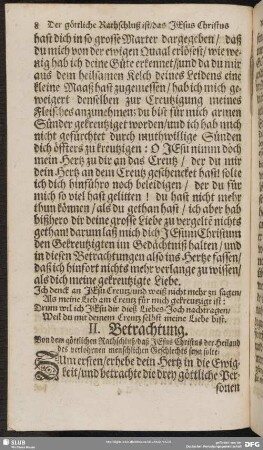 8 Der göttliche Rathschluß ist/das JEsus Christus
hast dich in so grosse Marter dargegeben/ daß
du mich von der ewigen Quaal erlösest/ wie we-
nig hab ich deine Güte erkennet/und da du mir
aus dem heilsamen Kelch deines Leidens eine
kleine Maaß hast zugemessen/ hab ich mich ge-
weigert denselben zur Creutzigung meines
Fleisches anzunehmen: du bist für mich armen
Sünder gekreutziget worden/und ich hab mich
nicht gefürchtet durch muthwillige Sünden
dich öffters zu kreutzigen: O JEsu nimm doch
mein Hertz zu dir an das Creutz/ der du mir
dein Hertz an dem Creutz geschencket hast! solte
ich dich hinführo noch beleidigen/ der du für
mich so viel hast gelitten! du hast nicht mehr
thun können/ als du gethan hast/ ich aber hab
bißhero dir deine grosse Liebe zu vergelten nichts
gethan! darum laß mich dich JEsum Christum
den Gekreutzigten im Gedächtniß halten/ und
in diesen Betrachtungen also ins Hertze fassen/
daß ich hinfort nichts mehr verlange zu wissen/
als dich meine gekreutzigte Liebe.
Ich denck an JEsu Creutz/und weiß nicht mehr zu sagen/
Als meine Lieb am Creutz für mich gekreutzigt ist:
Drum wil ich JEsu dir dieß Liebes-Joch nachtragen/
Weil du mit deinem Creutz selbst meine Liebe bist.
II. Betrachtung.
Von dem göttlichen Rathschluß/daß JEsus Christus der Heiland
des verlohrnen menschlichen Geschlechts seyn solte.
Zum ersten/erhebe dein Hertz in die Ewig-
keit/und betrachte die drey göttliche Per-
sonen
SLUB